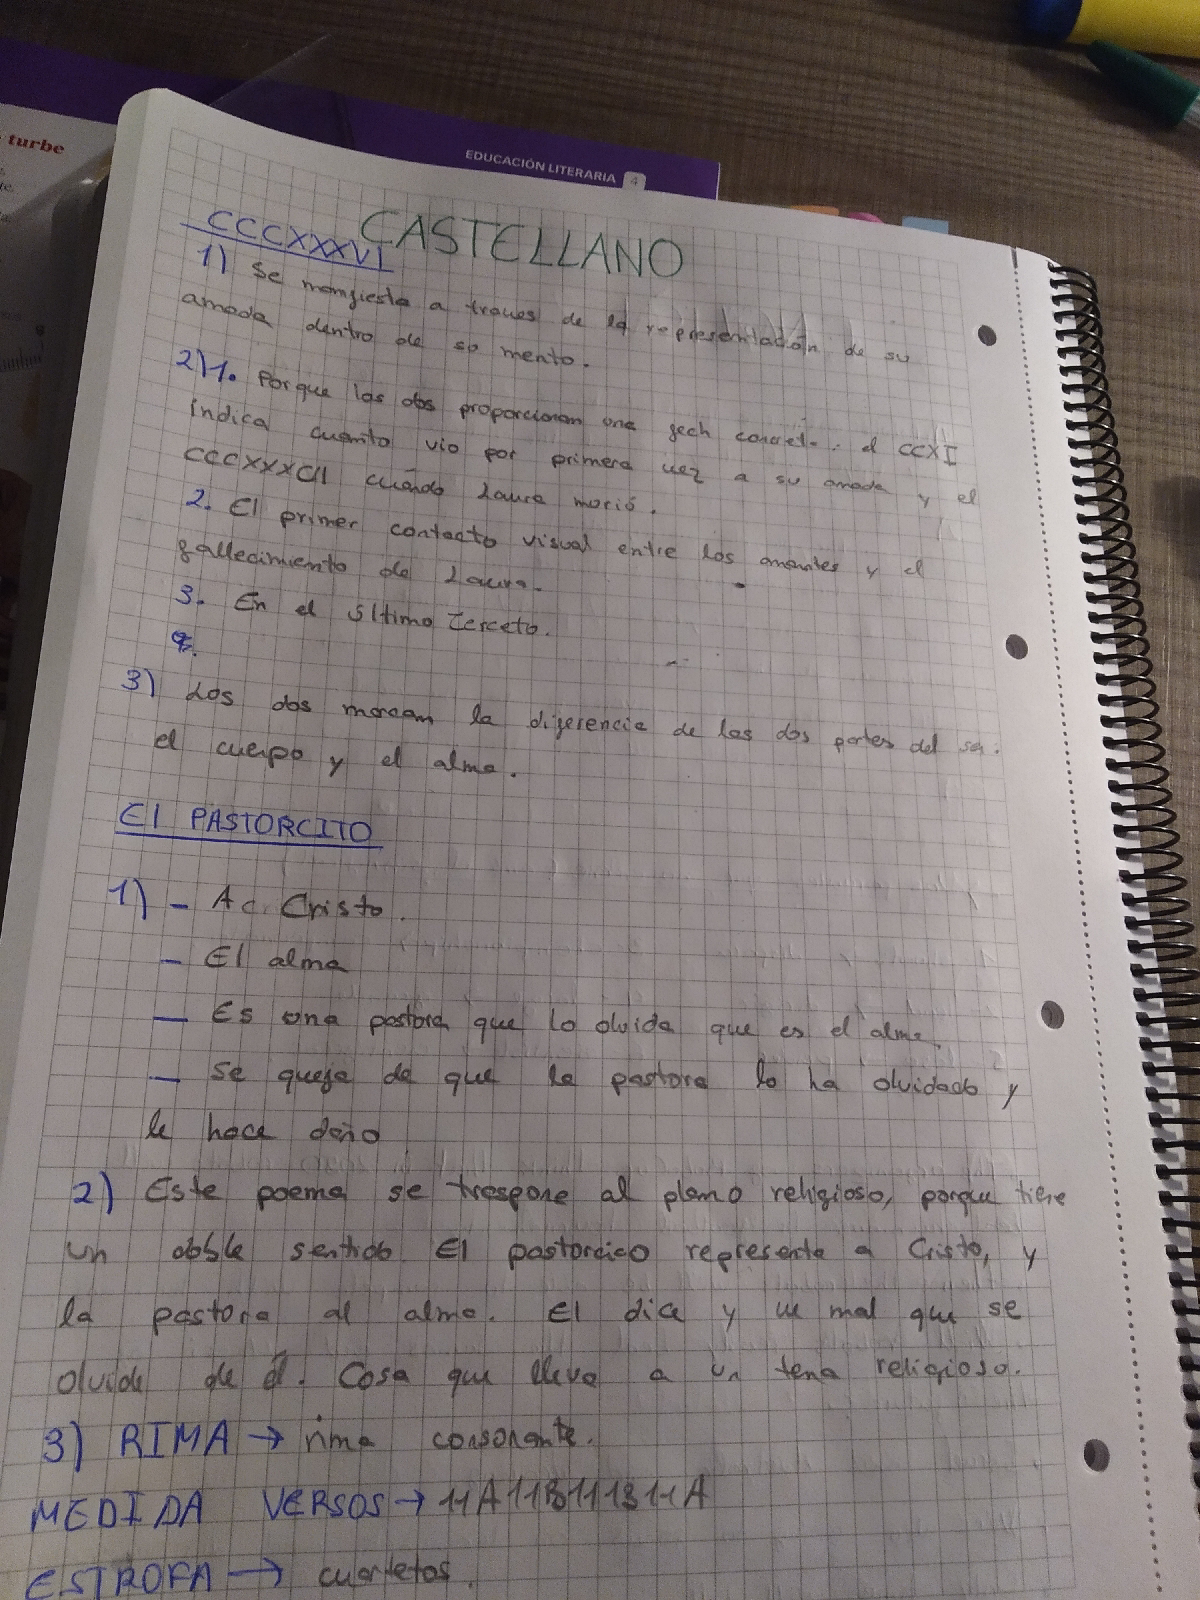 turbe
EDUCACIÓN LITERARIA 4
CASTELLANO
CCCXXXVI
1) Se manfiesta a traves de la representación de su
amada dentro de so mento.
2) 1. Porque las dos proporcionan una fech concret. : el CCXI
indica cuanto vio por primera vez a su amada y el
CCCXXXCII cuándo Laura morió.
2. El primer contacto visual entre los amantes y el
fallecimiento de Laura.
3. En el último terceto.
3) Los dos marcan la diferencia de las dos partes del ser.
el cuerpo y el alma.
El PASTORCITO
1) - A Cristo.
- El alma
- Es una pastora que lo olvida que es el alma.
- Se queja de que la pastora lo ha olvidado y
le hace daño
2) Este poema se traspone al plano religioso, porque tiene
un doble sentido El pastorcico representa a Cristo, y
la pastora al alma. El dice y ve mal que se
olvide de él. Cosa que lleva a un tema religioso.
3) RIMA → rima consonante.
MEDIDA VERSOS → 11A11B11B11A
ESTROFA → cuartetos.